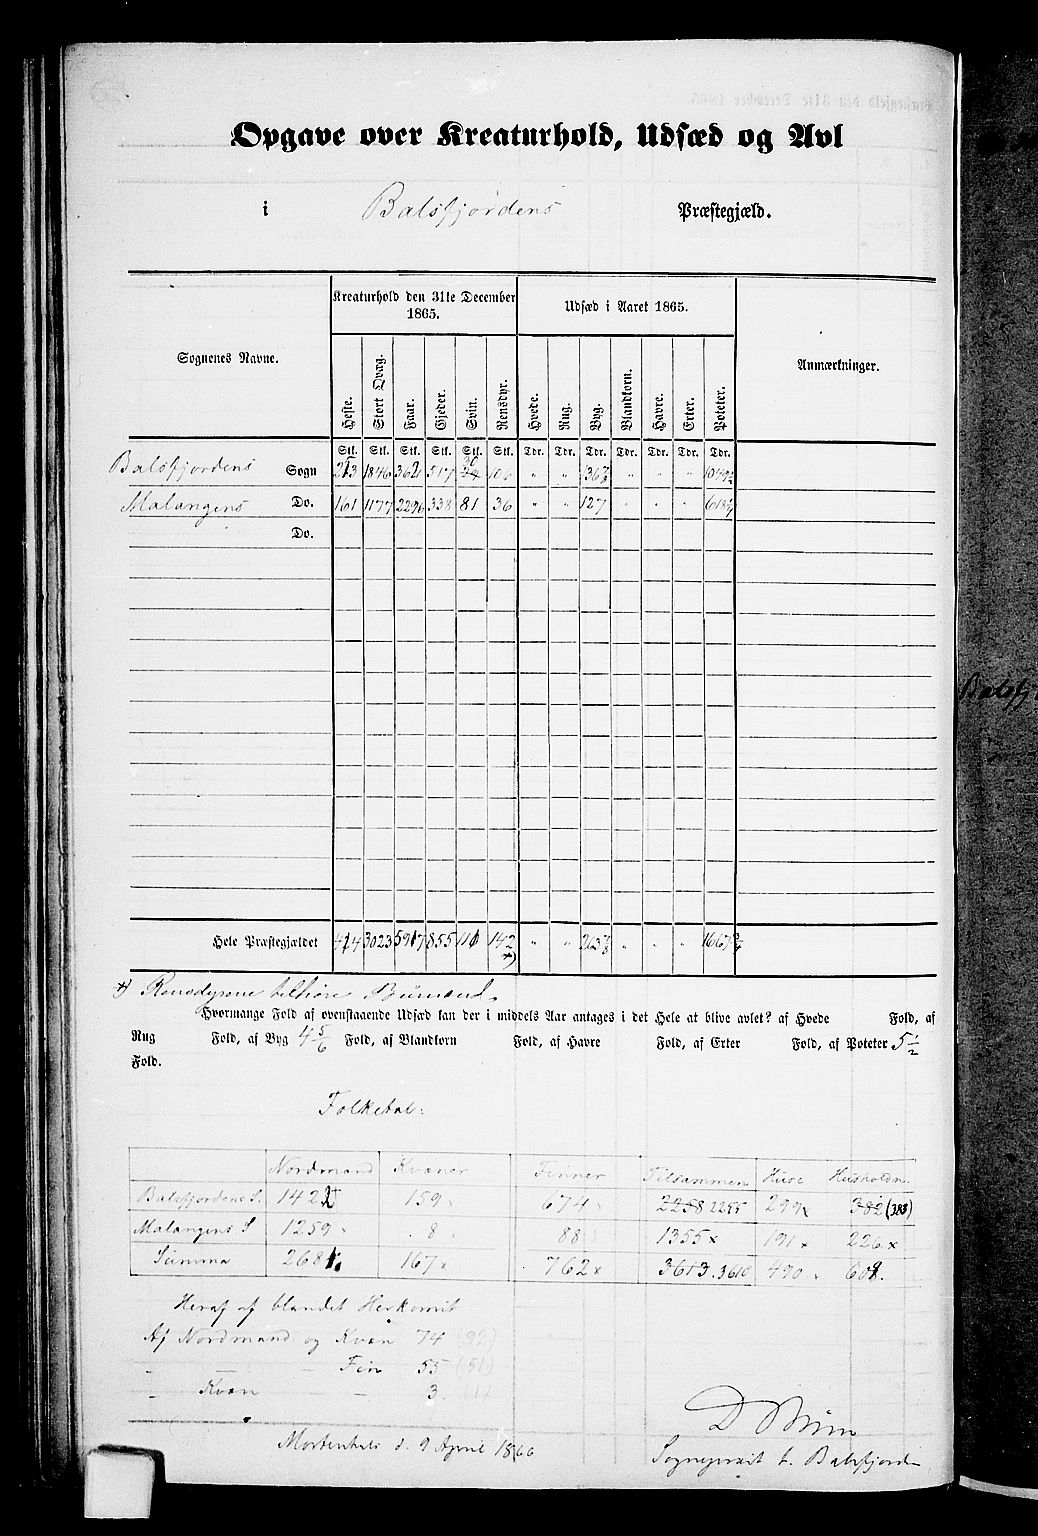 Opgave over Kreaturhold, Udsæd og Avl
i Balsfjordens Præstegjæld.
Sognenes Navne. Kreaturhold den 31te December 1865. Udsæd i Aaret 1865. Anmærkninger.
Heste. Stort Qvæg. Faar. Gjeder. Svin. Rensdyr. Hvede. Rug. Byg. Blandkorn. Havre. Erter. Poteter.
Stk. Stk. Stk. Stk. Stk. Stk. Tdr. Tdr. Tdr. Tdr. Tdr. Tdr. Tdr.
Balsfjordens Sogn 213 1846 3621 517 30 106 " " 136 7/8 " " " 1049 1/2
Malangens Do. 161 1177 2296 338 81 36 " " 127 " " " 618 1/4
Do.
Hele Præstegjældet 414 3023 5917 855 111 142 *) " " 263 7/8 " " " 1667 3/4
*) Rensdyrene tilhøre Bumænd.
Hvormange Fold af ovenstaaende Udsæd kan der i middels Aar antages i det Hele at blive avlet? af Hvede Fold, af
Rug Fold, af Byg 4 5/6 Fold, af Blandkorn Fold, af Havre Fold, af Erter Fold, af Poteter 5 1/2
Fold.
Folketal:
Nordmænd Kvæner Finner Tilsammen Huse Husholdn.
Balsfjordens S. 1422 159 674 x 2258 2255 299 x 382 (383)
Malangens S 1259 8 88 1355 x 191 x 226 x
Summa 2681 167 x 762 x 3613 . 3610 490 609.
Heraf af blandet Herkomst
Af Nordmænd og Kvæn 74 (92)
" — — Fin 55 (51)
" Kvæn — 3. (1)
Mortenhals d. 9 April 1866
Sognepræst t. Balsfjorden
Balsfj